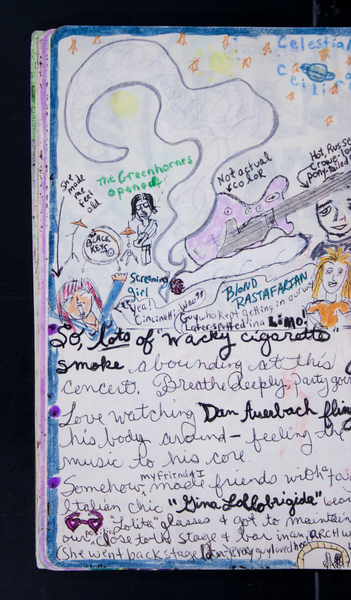 Celestial
Ceiling
The Greenhornes
opened!
She made me feel old
Not actual
color
Hot Russell
Crowe
ponytailed
BLACK
KEYS
Screaming
girl
Yea!
Cincinnati
Wooo
BLOND
RASTAFARIAN
Guy who kept getting in our way
Later spotted in a Limo!
So, lots of "wacky cigarette"
smoke abounding at this
concert. Breathe deeply, party goin
Love watching Dan Auerbach fling
his body around - feeling the
music to his core
my Friend & I
Somehow, made friends with a fa
Italian chic "Gina Lollobrigida" wear
"Lolita" glasses & got to maintain
our close to stage & bar in an ARCH w
She went backstage
guy loved her